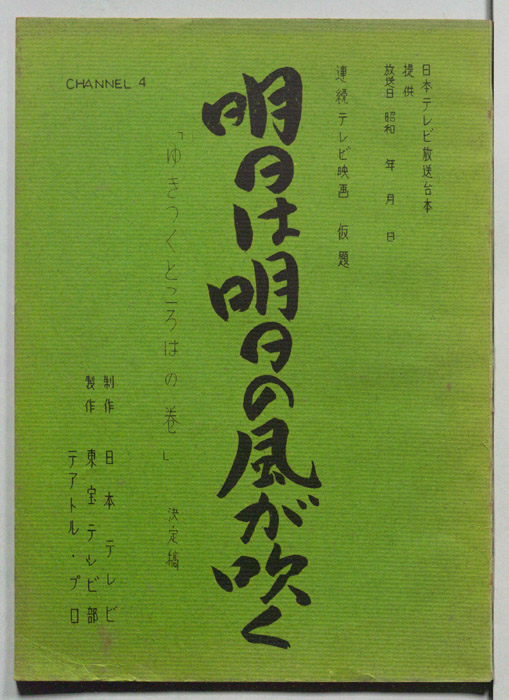 日本テレビ放送台本
提供
放送日 昭和 年 月 日
連続テレビ映画 仮題
明日は明日の風が吹く
「ゆきつくところはの巻」 決定稿
CHANNEL 4
制作 日本テレビ
製作 東宝テレビ部
テアトル・プロ